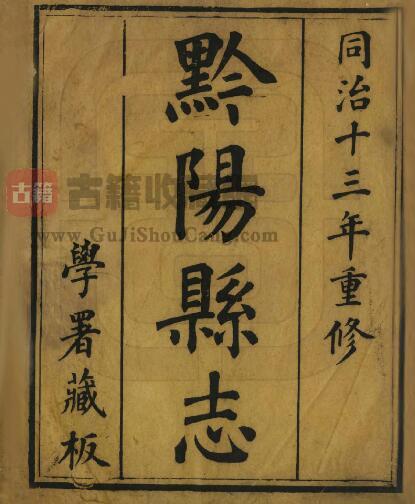 同治十三年重修
黔陽縣志
學署藏板
古籍
古籍收
www.GuJiShouCang.com